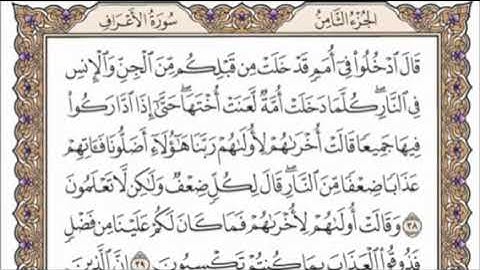 الجزء الثامن سورة الأعراف
قَالَ ٱدْخُلُوا۟ فِىٓ أُمَمٍ قَدْ خَلَتْ مِن قَبْلِكُم مِّنَ ٱلْجِنِّ وَٱلْإِنسِ
فِى ٱلنَّارِ ۖ كُلَّمَا دَخَلَتْ أُمَّةٌ لَّعَنَتْ أُخْتَهَا ۖ حَتَّىٰٓ إِذَا ٱدَّارَكُوا۟
فِيهَا جَمِيعًا قَالَتْ أُخْرَىٰهُمْ لِأُولَىٰهُمْ رَبَّنَا هَٰٓؤُلَآءِ أَضَلُّونَا فَـَٔاتِهِمْ
عَذَابًا ضِعْفًا مِّنَ ٱلنَّارِ ۖ قَالَ لِكُلٍّ ضِعْفٌ وَلَٰكِن لَّا تَعْلَمُونَ
٣٨ وَقَالَتْ أُولَىٰهُمْ لِأُخْرَىٰهُمْ فَمَا كَانَ لَكُمْ عَلَيْنَا مِن فَضْلٍ
فَذُوقُوا۟ ٱلْعَذَابَ بِمَا كُنتُمْ تَكْسِبُونَ ٣٩ إِنَّ ٱلَّذِينَ